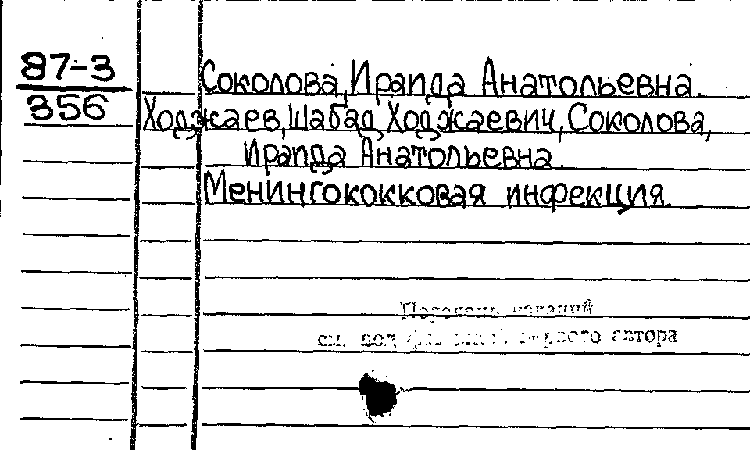 87-3
356
Соколова, Ираида Анатольевна.
Ходжаев, Шабад Ходжаевич, Соколова,
Ираида Анатольевна.
Менингококковая инфекция.
Перечень изданий
см. под автора